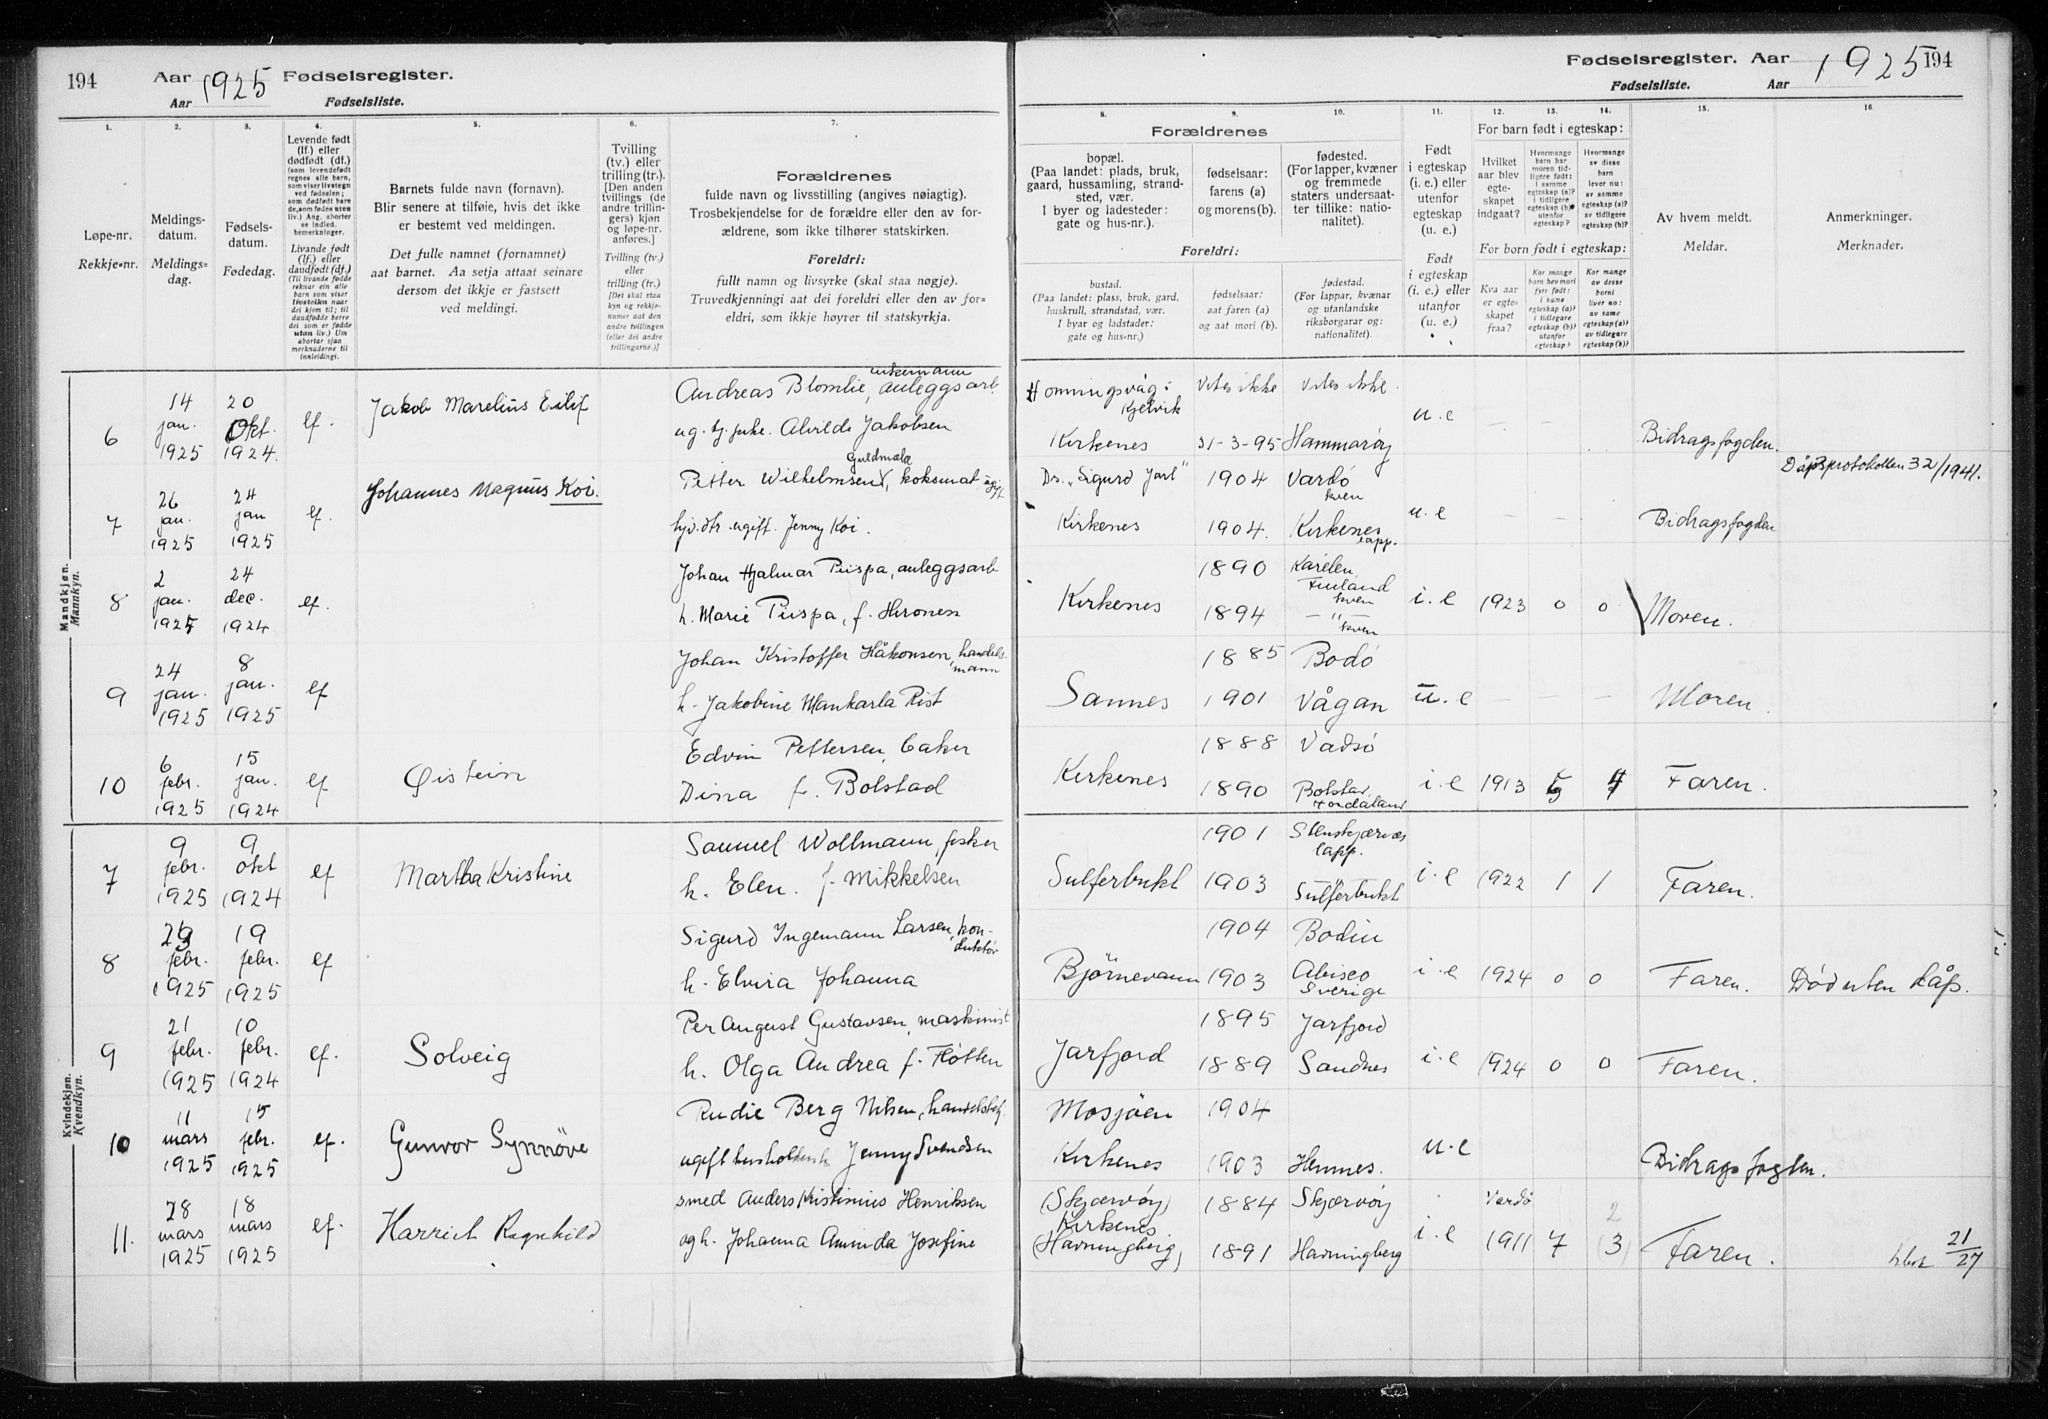 194 Aar 1925 Fødselsregister.
Aar Fødselsliste.
Fødselsregister. Aar 1925 194
Fødselsliste. Aar
1. 2. 3. 4. 5. 6. 7.
Løpe-nr.
Rekkje-nr.
Meldings-
datum.
Meldings-
dag.
Fødsels-
datum.
Fødedag.
Levende født
(lf.) eller
dødfødt (df.)
Livande fødd
(lf.) eller
daudfødt (df.)
Barnets fulde navn (fornavn).
Blir senere at tilføie, hvis det ikke
er bestemt ved meldingen.
Det fulle namnet (fornamnet)
aat barnet. Aa setja attaat seinare
dersom det ikkje er fastsett
ved meldingi.
Tvilling
(tv.) eller
trilling (tr.).
[Den anden
tvillings (de
andre trillin-
gers) kjøn
og løpe-nr.
anføres.]
Tvilling (tv.)
eller
trilling (tr.)
[Det skal staa
kyn og rekkje-
numer aat den
andre tvillingen
(eller dei andre
trillingarne.)]
Forældrenes
fulde navn og livsstilling (angives nøiagtig).
Trosbekjendelse for de forældre eller den av for-
ældrene, som ikke tilhører statskirken.
Foreldri:
fullt namn og livsyrke (skal staa nøgje).
Truvedkjenningi aat dei foreldri eller den av for-
eldri, som ikkje høyrer til statskyrkja.
8. 9. 10. 11. 12. 13. 14. 15. 16.
Forældrenes
bopæl.
(Paa landet: plads, bruk,
gaard, hussamling, strand-
sted, vær.
I byer og ladesteder:
gate og hus-nr.).
fødselsaar:
farens (a)
og morens (b).
fødested.
(For lapper, kvæner
og fremmede
staters undersaat-
ter tillike: natio-
nalitet).
Foreldri:
bustad.
(Paa landet: plass, bruk, gard,
huskrull, strandstad, vær.
I byar og ladstader:
gate og hus-nr.)
fødselsaar:
aat faren (a)
og aat mori (b).
fødestad.
(For lappar, kvænar
og utanlandske
riksborgarar og:
nationalitet).
Født
i egteskap
(i. e.) eller
utenfor
egteskap
(u. e.)
Født
i egteskap
(i. e.) eller
utanfor
egteskap
(u. e.)
For barn født i egteskap:
Hvilket
aar blev
egte-
skapet
indgaat?
For born født i egteskap:
Kva aar
er egte-
skapet
fraa?
Av hvem meldt.
Meldar.
Anmerkninger.
Merknader.
Mandkjøn.
Mannkyn.
6 14 jan. 1925 20 Okt. 1924. lf. Jakob Marelius Eilif
Andreas Blomlie, enkemann anleggsarb.
ug. tj. pike. Alvilde Jakobsen
Honningsvåg i Kjelvik Vites ikke Vites ikke u.e
Kirkenes 31-3-95 Hammarøy Bidragsfogden
7 26 jan. 1925 24 jan 1925 lf. Johannes Magnus Koi.
Petter Wilhelmsen, koksmat ugift
hjv. dtr. ugift. Jenny Koi.
Ds. "Sigurd Jarl" 1904 Vardø kven u.e
Kirkenes 1904. Kirkenes lapp. Bidragsfogden Dåpsprotokollen 32/1941.
8 2 jan. 1925 24 dec. 1924 lf.
Johan Hjalmar Puspa, anleggsarb
h. Marie Puspa, f. Hironen
Kirkenes 1890 Karelen Finland kven
1894 — " — kven i.e 1923 0 0 Moren.
9 24 jan. 1925 8 jan. 1925 lf
Johan Kristoffer Håkonsen, handelsmann
h. Jakobine Mankarla Rist
Sannes 1885 Bodø
1901 Vågan u.e Moren.
10 6 febr. 1925 15 jan. 1924 lf Øistein
Edvin Pettersen, baker
Dina f. Bolstad
Kirkenes 1888 Vadsø
1890 Bolstad Hordaland i.e 1913 5 4 Faren.
Kvindekjøn.
Kvendkyn.
7 9 febr. 1925 9 okt 1924 lf Martha Kristine
Samuel Wollmann, fisker
h. Elen. f. Mikkelsen
Sulferbukt 1901 Stenskjærnes lapp.
1903 Sulferbukt i.e 1922 1 1 Faren.
8 febr. 1925 19 febr. 1925 lf
Sigurd Ingemann Larsen, konduktør
h. Elvira Johanna
Bjørnevann 1904 Bodin
1903 Abisco Sverige i.e 1924 0 0 Faren. Død uten dåp.
9 21 febr. 1925 10 febr. 1924 lf. Solveig
Per August Gustavsen, maskinist
h. Olga Andrea f. Fløtten
Jarfjord 1895 Jarfjord
1889 Sandnes i.e 1924 0 0 Faren.
10 11 mars 1925 15 febr. 1925 lf. Gunvor Synnøve
Rudie Berg Nilsen, handelsbetj.
ugift husholderske Jenny Svendsen
Mosjøen 1904
Kirkenes 1903 Hemnes. u.e Bidragsfogden.
11. 28 mars 1925 18 mars 1925 lf. Harriet Ragnhild
smed Anders Kristinius Henriksen
og h. Johanna Aminda Josefine
(Skjærvøy) Kirkenes (Havningberg) 1884 Skjærvøy Vardø
1891 Havningberg i.e 1911 7 2 (3) Faren. 21/27